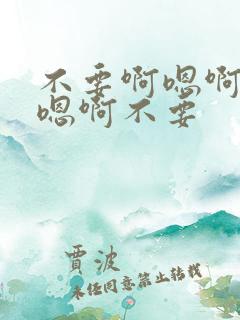 不要啊嗯啊
嗯啊不要
贾波
未经同意禁止转载